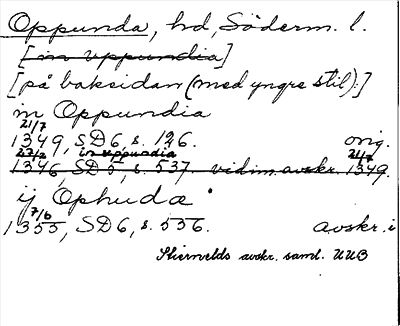 Oppunda, hd, Söderm. l.
[in uppundia]
[på baksidan (med yngre stil):]
in Oppundia
21/7
1349, SD6, s. 126. orig.
in uppundia
1346, SD5, s. 537. vidim. avskr. 1349.
ij Ophudæ
7/6
1355, SD6, s. 556. avskr. i
Skiernelds avskr. saml. UUB